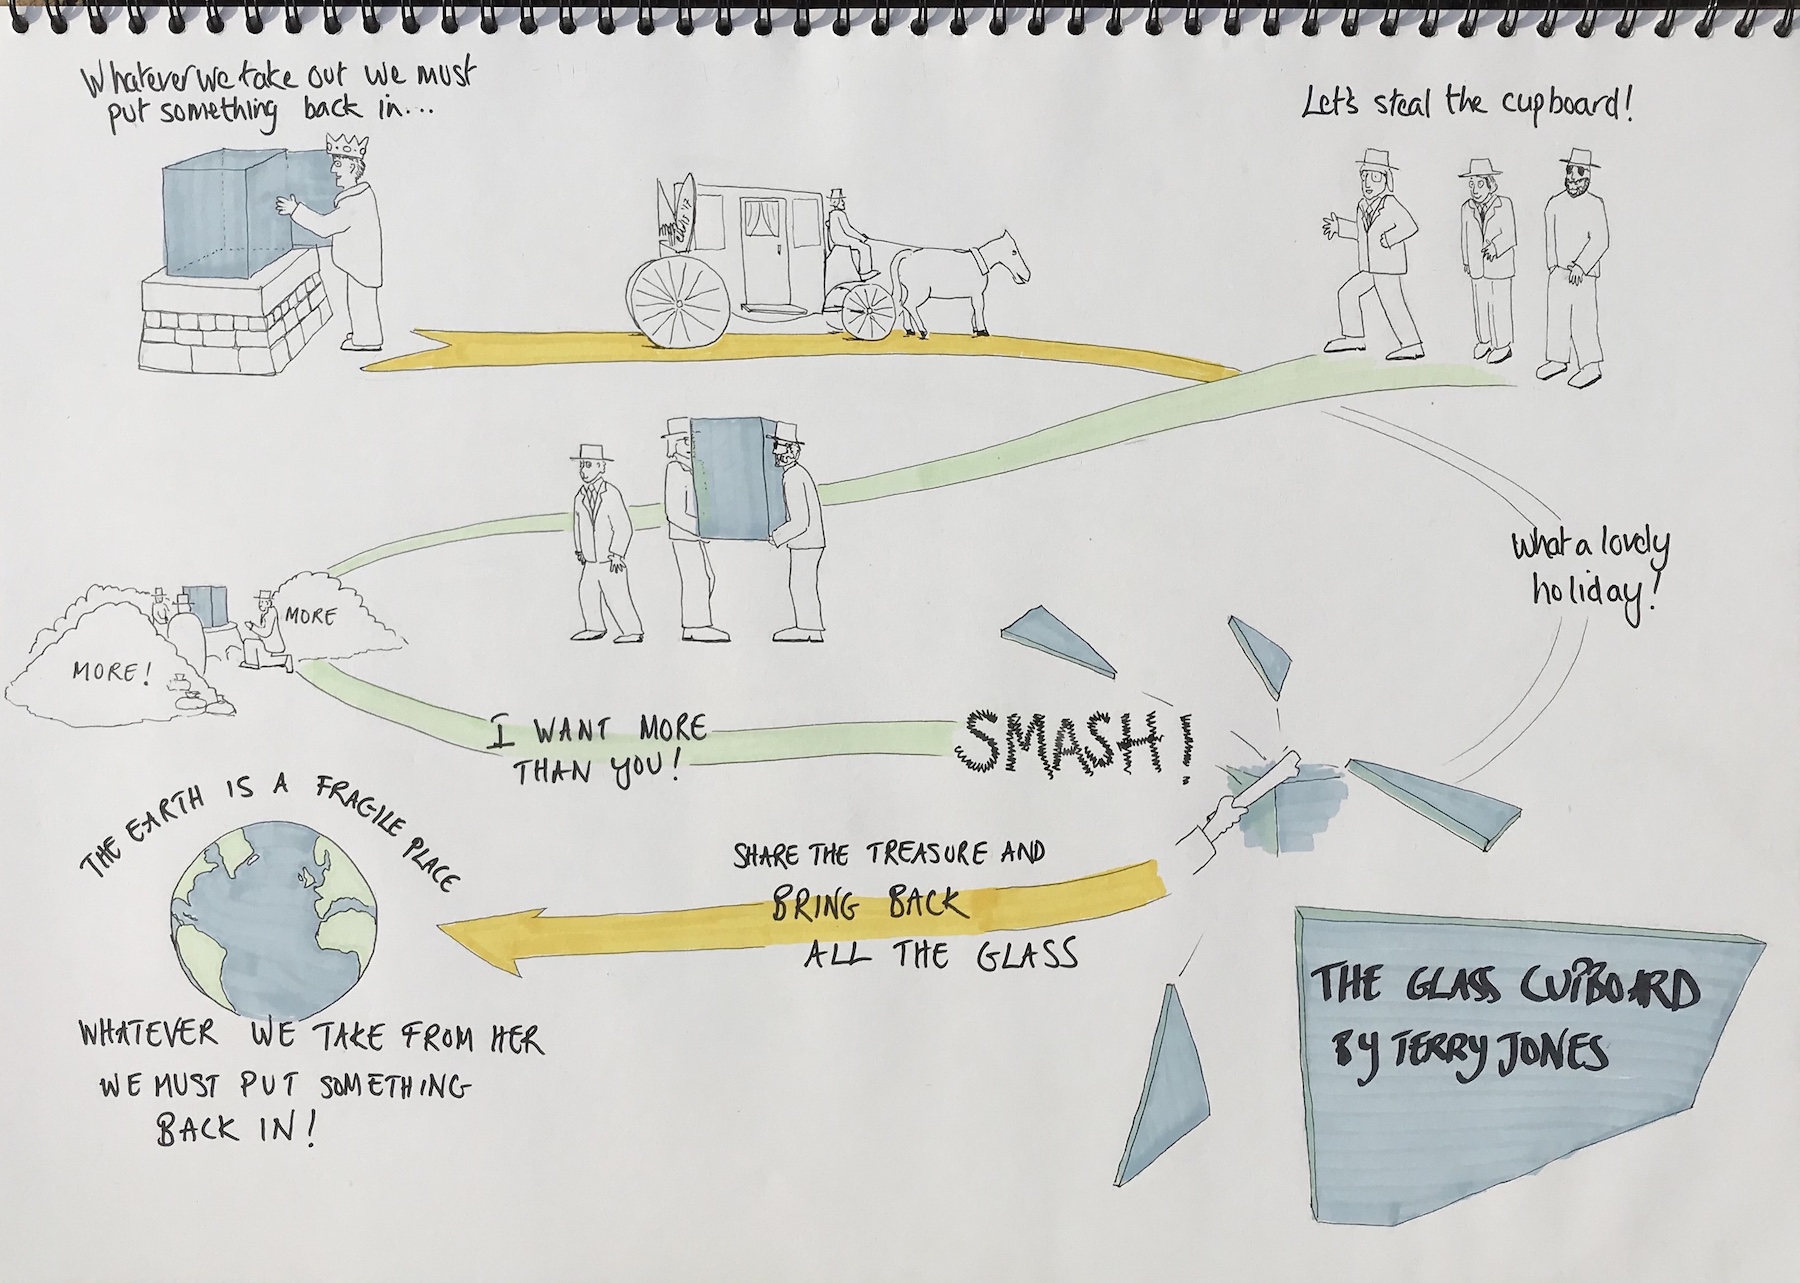 Whatever we take out we must
put something back in...
Let's steal the cupboard!
What a lovely
holiday!
MORE
MORE!
I WANT MORE
THAN YOU!
SMASH!
THE EARTH IS A FRAGILE PLACE
SHARE THE TREASURE AND
BRING BACK
ALL THE GLASS
WHATEVER WE TAKE FROM HER
WE MUST PUT SOMETHING
BACK IN!
THE GLASS CUPBOARD
BY TERRY JONES